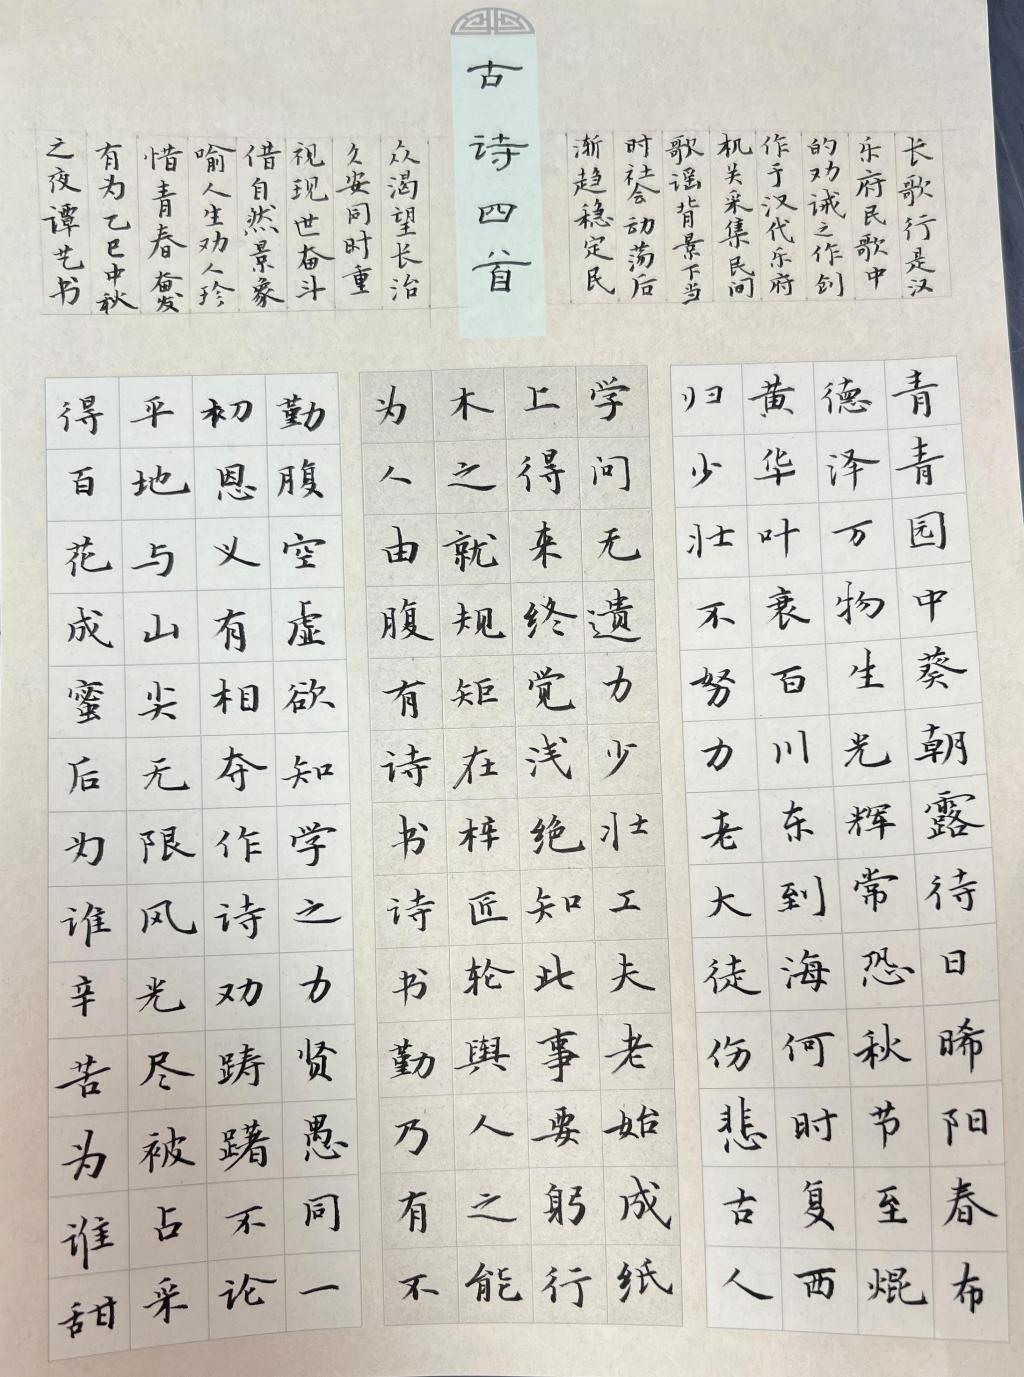 古诗四首
长歌行是汉
乐府民歌中
的劝诫之作创
作于汉代乐府
机关采集民间
歌谣背景下当
时社会动荡后
渐趋稳定民
众渴望长治
久安同时重
视现世奋斗
借自然景象
喻人生劝人珍
惜青春奋发
有为乙巳中秋
之夜谭艺书
青青园中葵朝露待日晞阳春布
德泽万物生光辉常恐秋节至焜
黄华叶衰百川东到海何时复西
归少壮不努力老大徒伤悲古人
学问无遗力少壮工夫老始成纸
上得来终觉浅绝知此事要躬行
木之就规矩在梓匠轮舆人之能
为人由腹有诗书诗书勤乃有不
勤腹空虚欲知学之力贤愚同一
初恩义有相夺作诗劝踌躇不论
平地与山尖无限风光尽被占采
得百花成蜜后为谁辛苦为谁甜